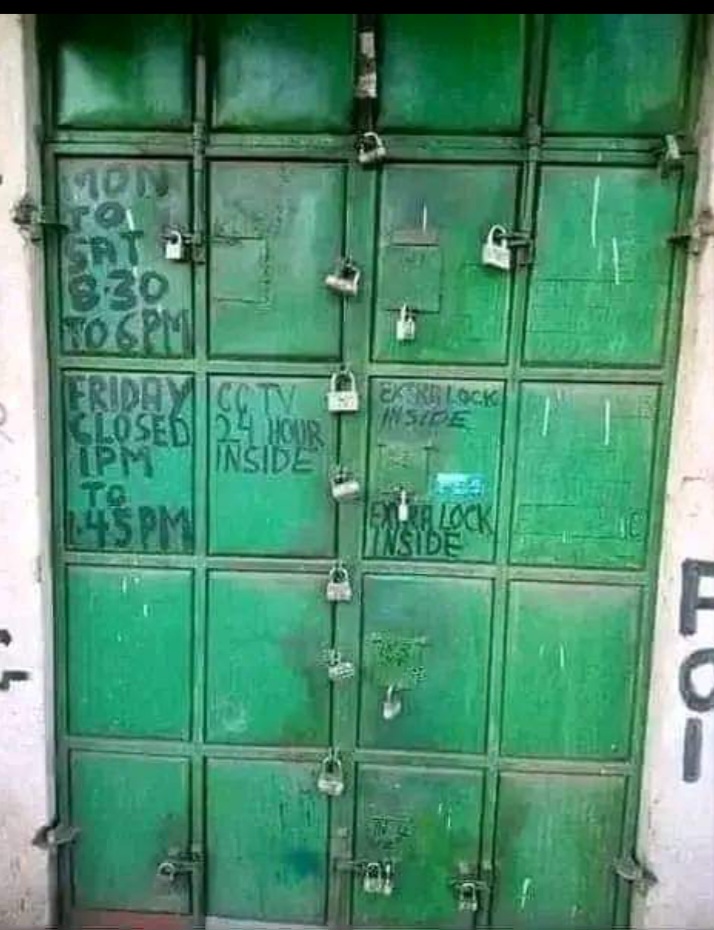 MON
TO
SAT
8-30
TO 6PM
FRIDAY
CLOSED
1PM
TO
1.45PM
CCTV
24 HOUR
INSIDE
EXTRA LOCK
INSIDE
EXTRA LOCK
INSIDE
POI